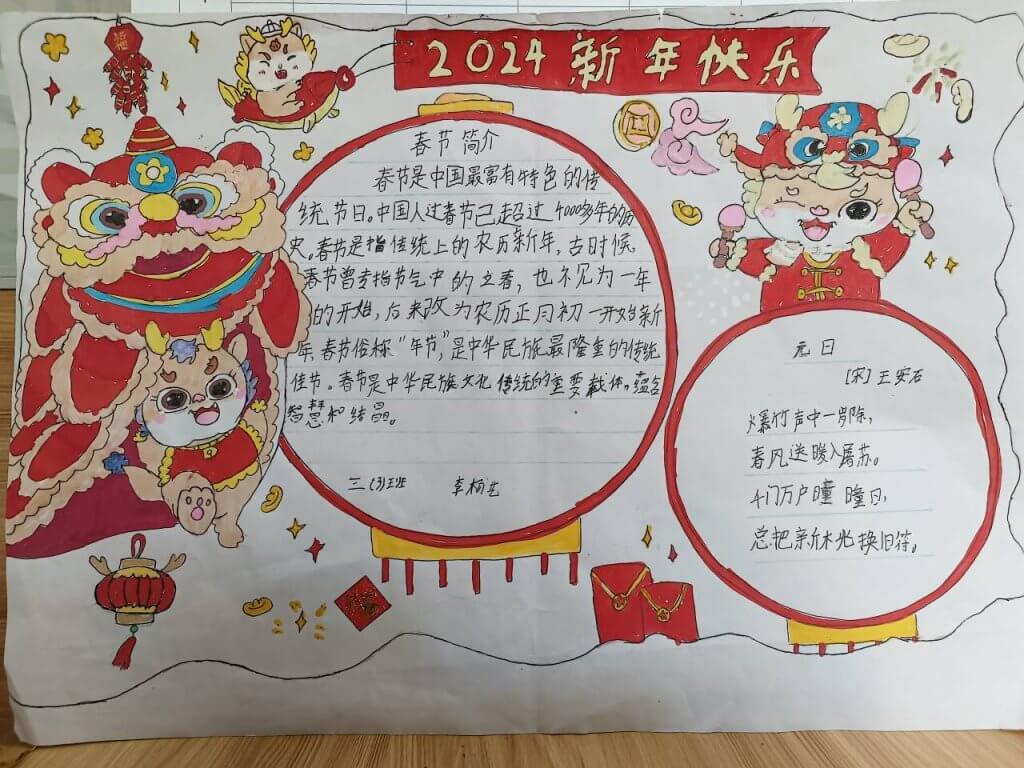 2024 新年快乐
春节简介
春节是中国最富有特色的传
统节日。中国人过春节已超过4000多年的历
史。春节是指传统上的农历新年,古时候
春节曾专指节气中的立春,也被视为一年
的开始,后来改为农历正月初一开始新
年。春节俗称“年节”,是中华民族最隆重的传统
佳节。春节是中华民族文化传统的重要载体。蕴含
智慧和结晶。
三(3)班 李
元日
[宋]王安石
爆竹声中一岁除,
春风送暖入屠苏。
千门万户曈曈日,
总把新桃换旧符。